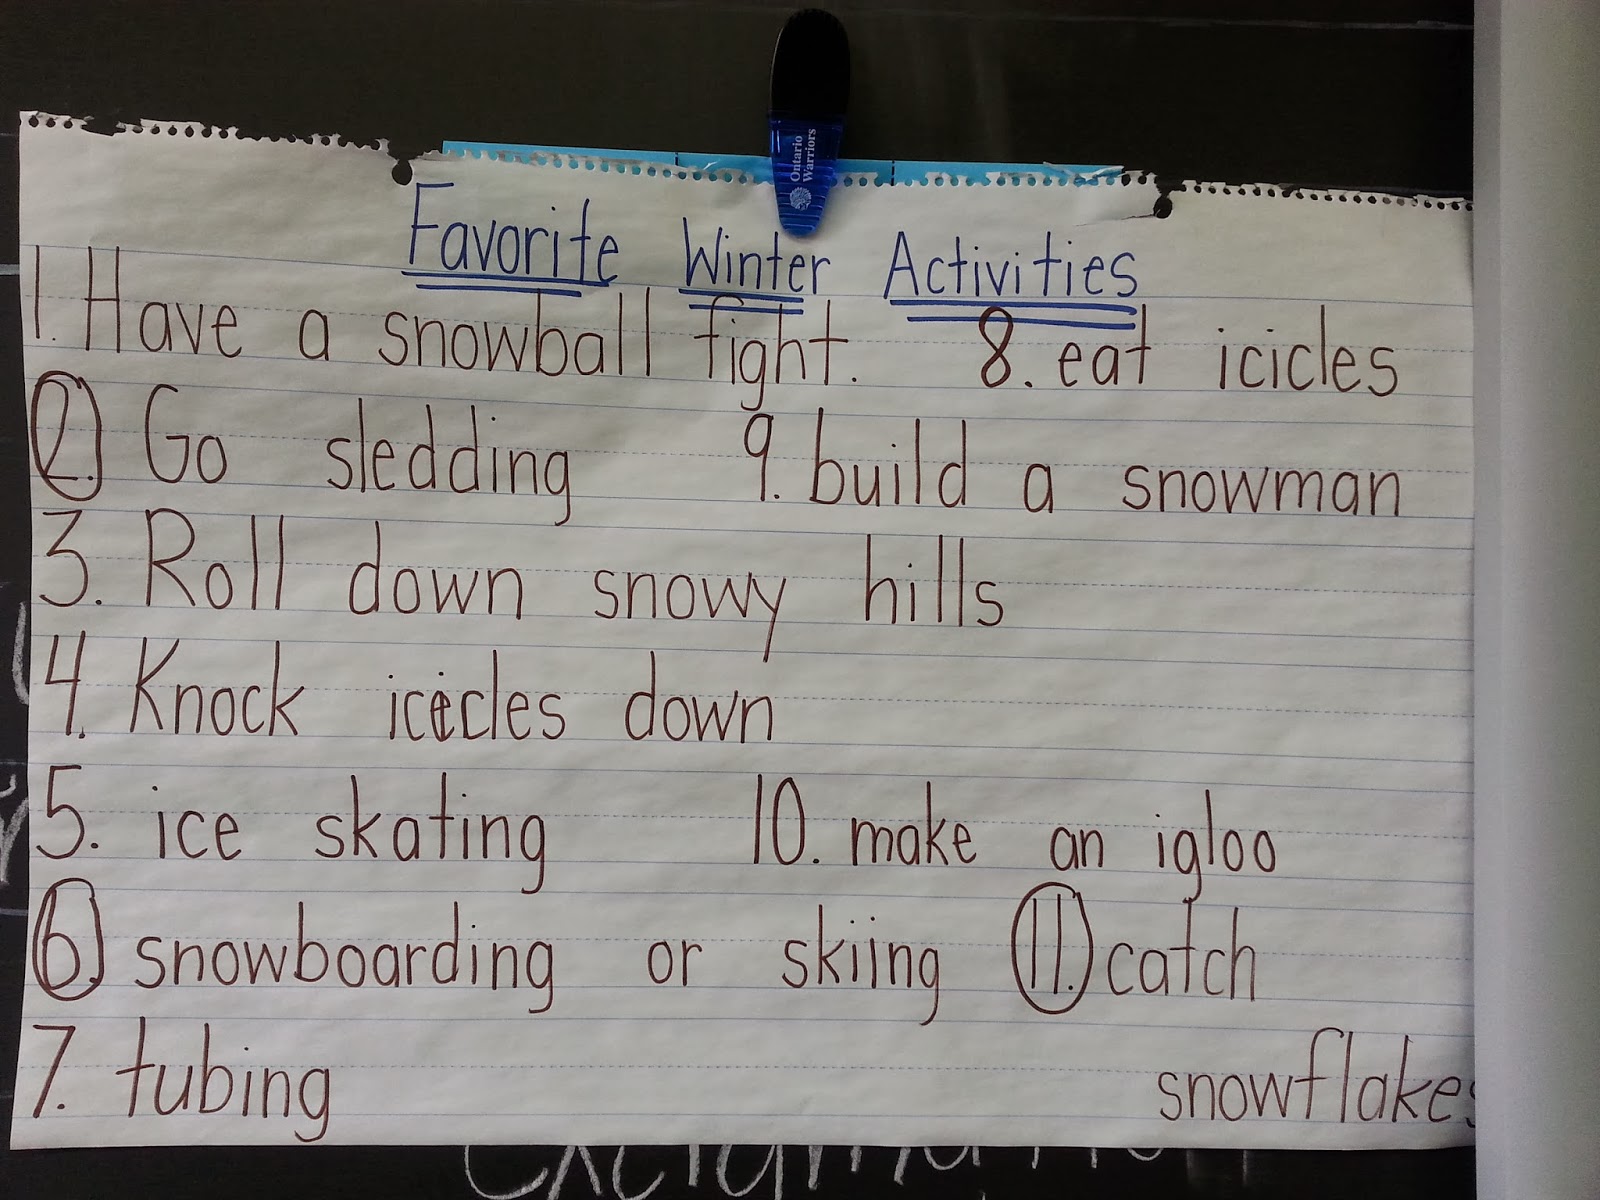 Ontario
Warriors
Favorite Winter Activities
1. Have a snowball fight. 8. eat icicles
2. Go sledding 9. build a snowman
3. Roll down snowy hills
4. Knock icicles down
5. ice skating 10. make an igloo
6. snowboarding or skiing 11. catch
7. tubing snowflakes